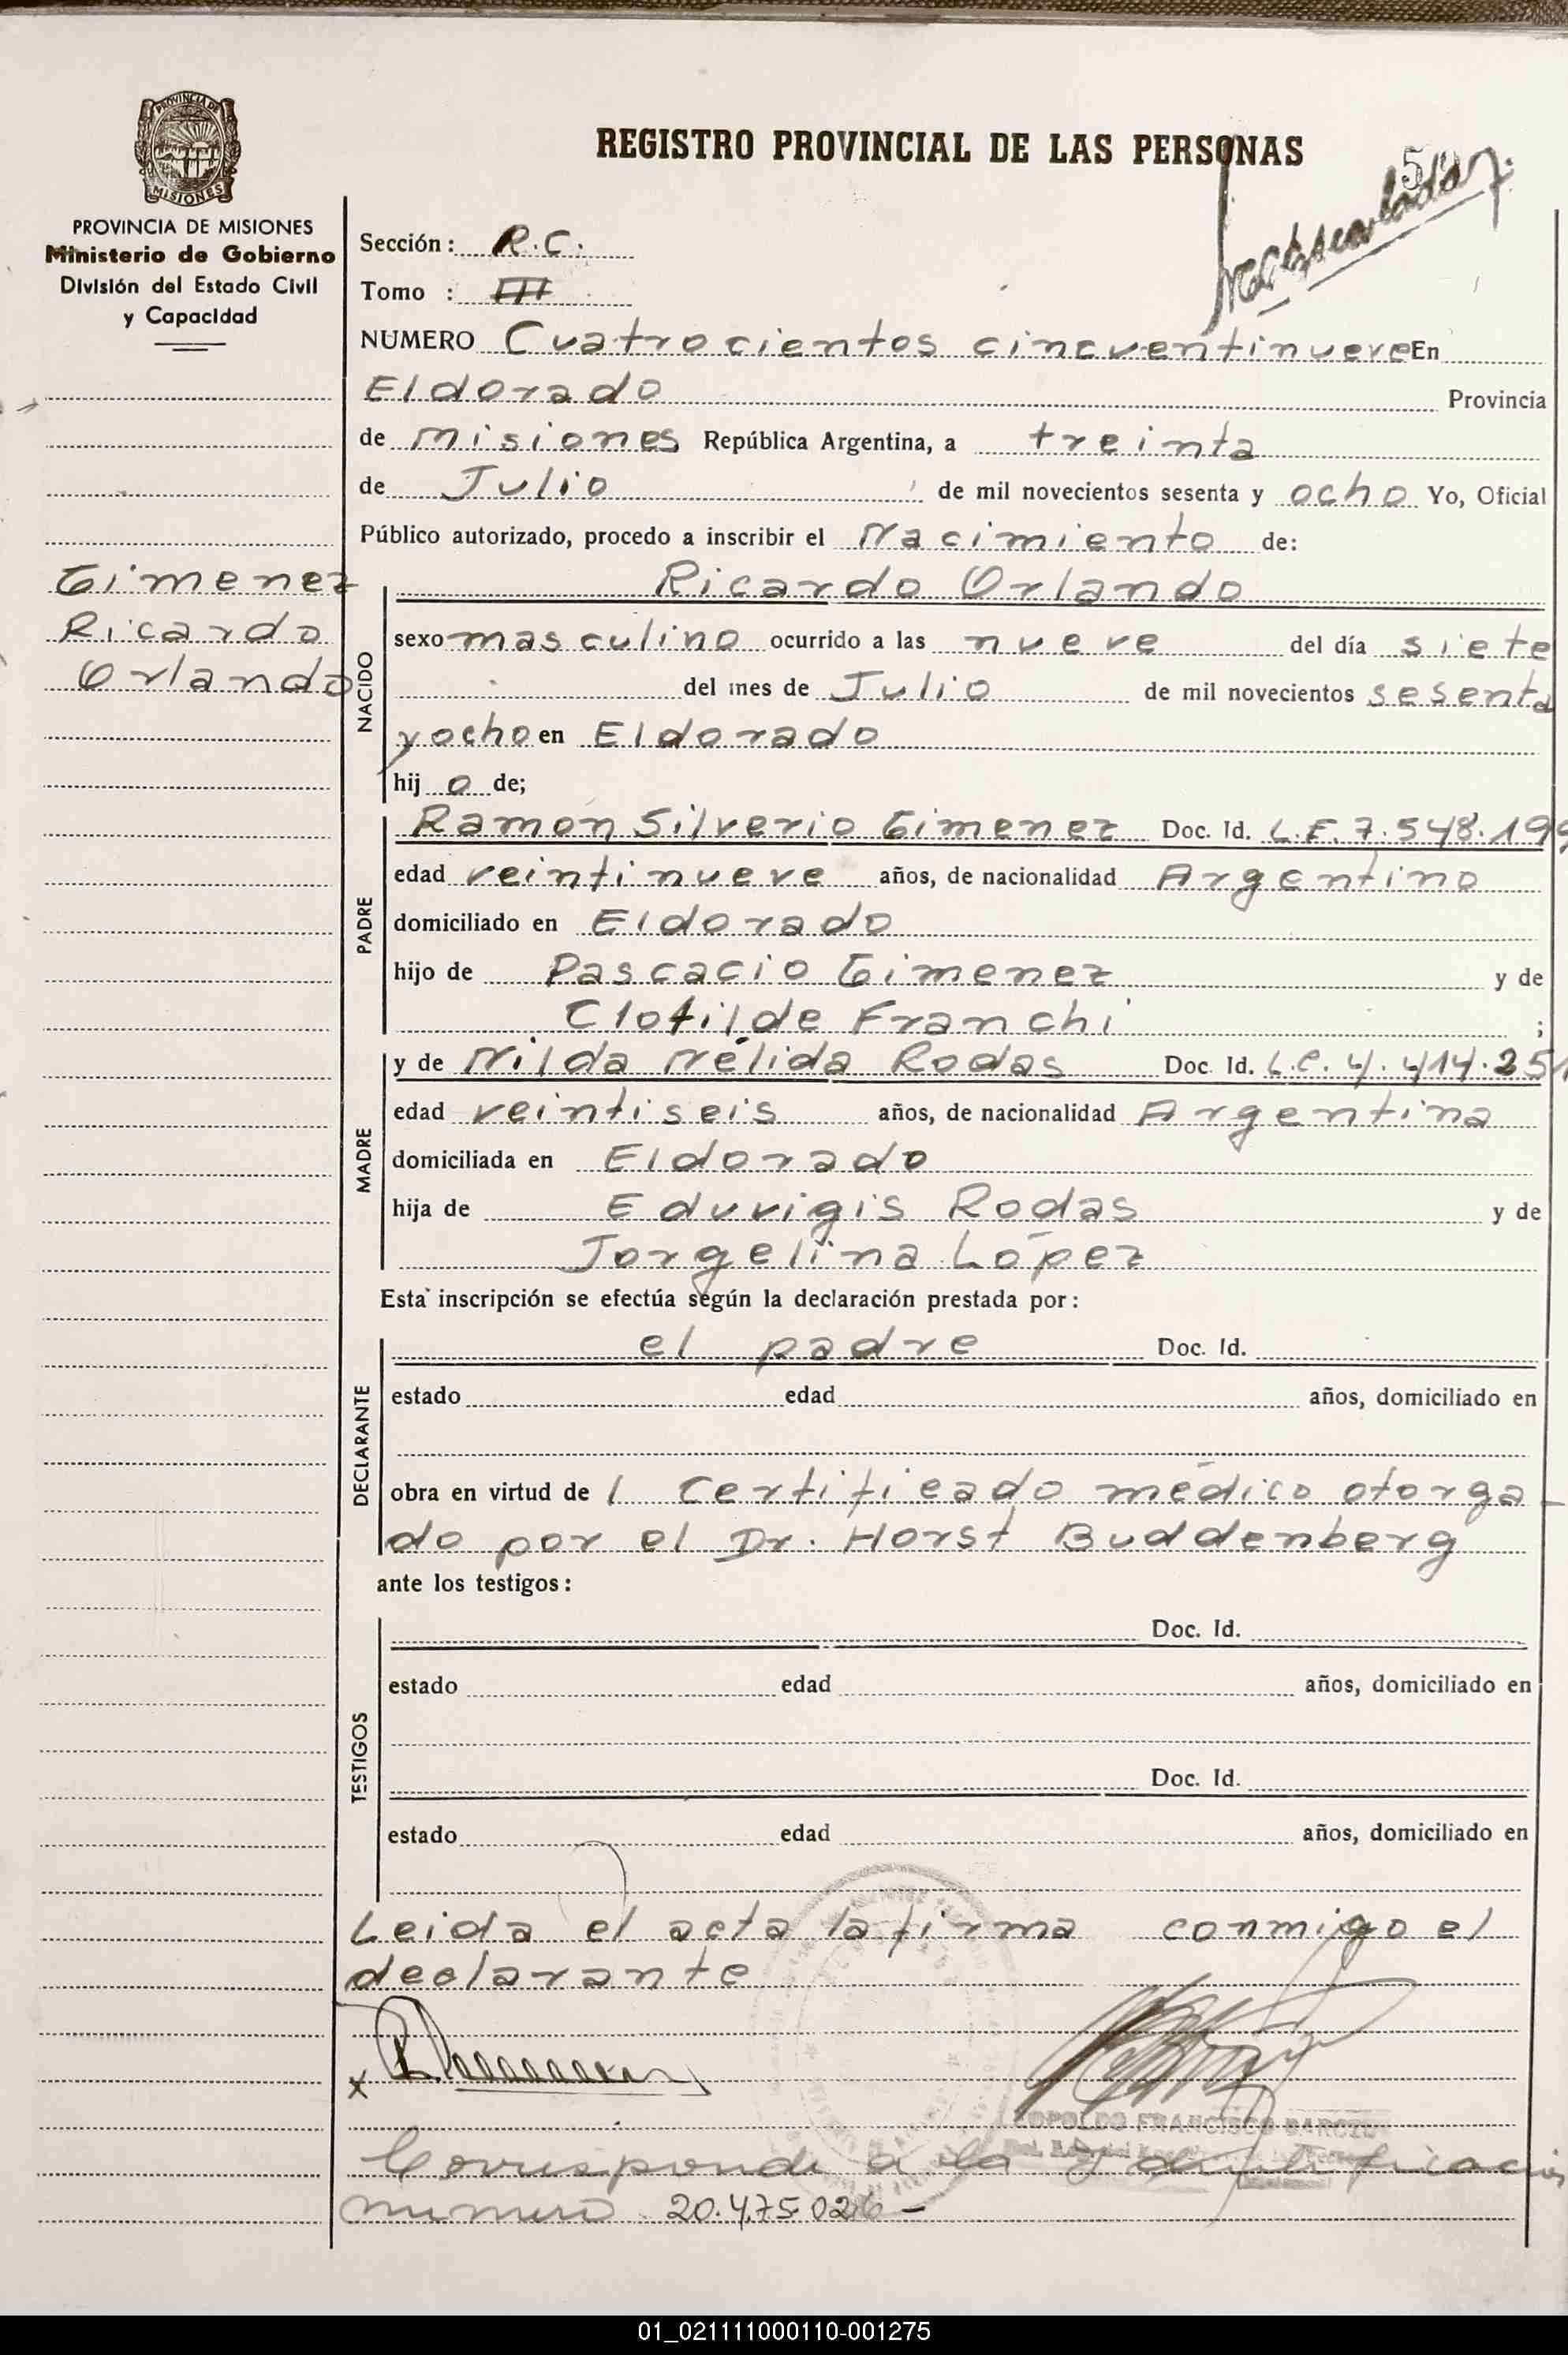 PROVINCIA DE
MISIONES
PROVINCIA DE MISIONES
Ministerio de Gobierno
División del Estado Civil
y Capacidad
REGISTRO PROVINCIAL DE LAS PERSONAS
Sección: R.C.
Tomo : III
NUMERO Cuatrocientos cincuentinueve En
Eldorado Provincia
de Misiones República Argentina, a treinta
de Julio de mil novecientos sesenta y ocho Yo, Oficial
Público autorizado, procedo a inscribir el Nacimiento de:
Gimenez
Ricardo
Orlando
NACIDO
Ricardo Orlando
sexo masculino ocurrido a las nueve del día siete
del mes de Julio de mil novecientos sesenta
y ocho en Eldorado
hij o de;
PADRE
Ramón Silverio Gimenez Doc. Id. L.E. 7.548.199
edad veintinueve años, de nacionalidad Argentino
domiciliado en Eldorado
hijo de Pascacio Gimenez y de
Clotilde Franchi ;
MADRE
y de Nilda Nélida Rodas Doc. Id. L.C. 4.414.251
edad veintiseis años, de nacionalidad Argentina
domiciliada en Eldorado
hija de Eduvigis Rodas y de
Jorgelina López
Esta inscripción se efectúa según la declaración prestada por:
DECLARANTE
el padre Doc. Id.
estado edad años, domiciliado en
obra en virtud de l certificado médico otorga-
do por el Dr. Horst Buddenberg
ante los testigos:
TESTIGOS
Doc. Id.
estado edad años, domiciliado en
Doc. Id.
estado edad años, domiciliado en
Leida el acta la firma conmigo el
declarante
x
FRANCISCO
Corresponde a la Identificación
numero 20.475.026 -
01_021111000110-001275